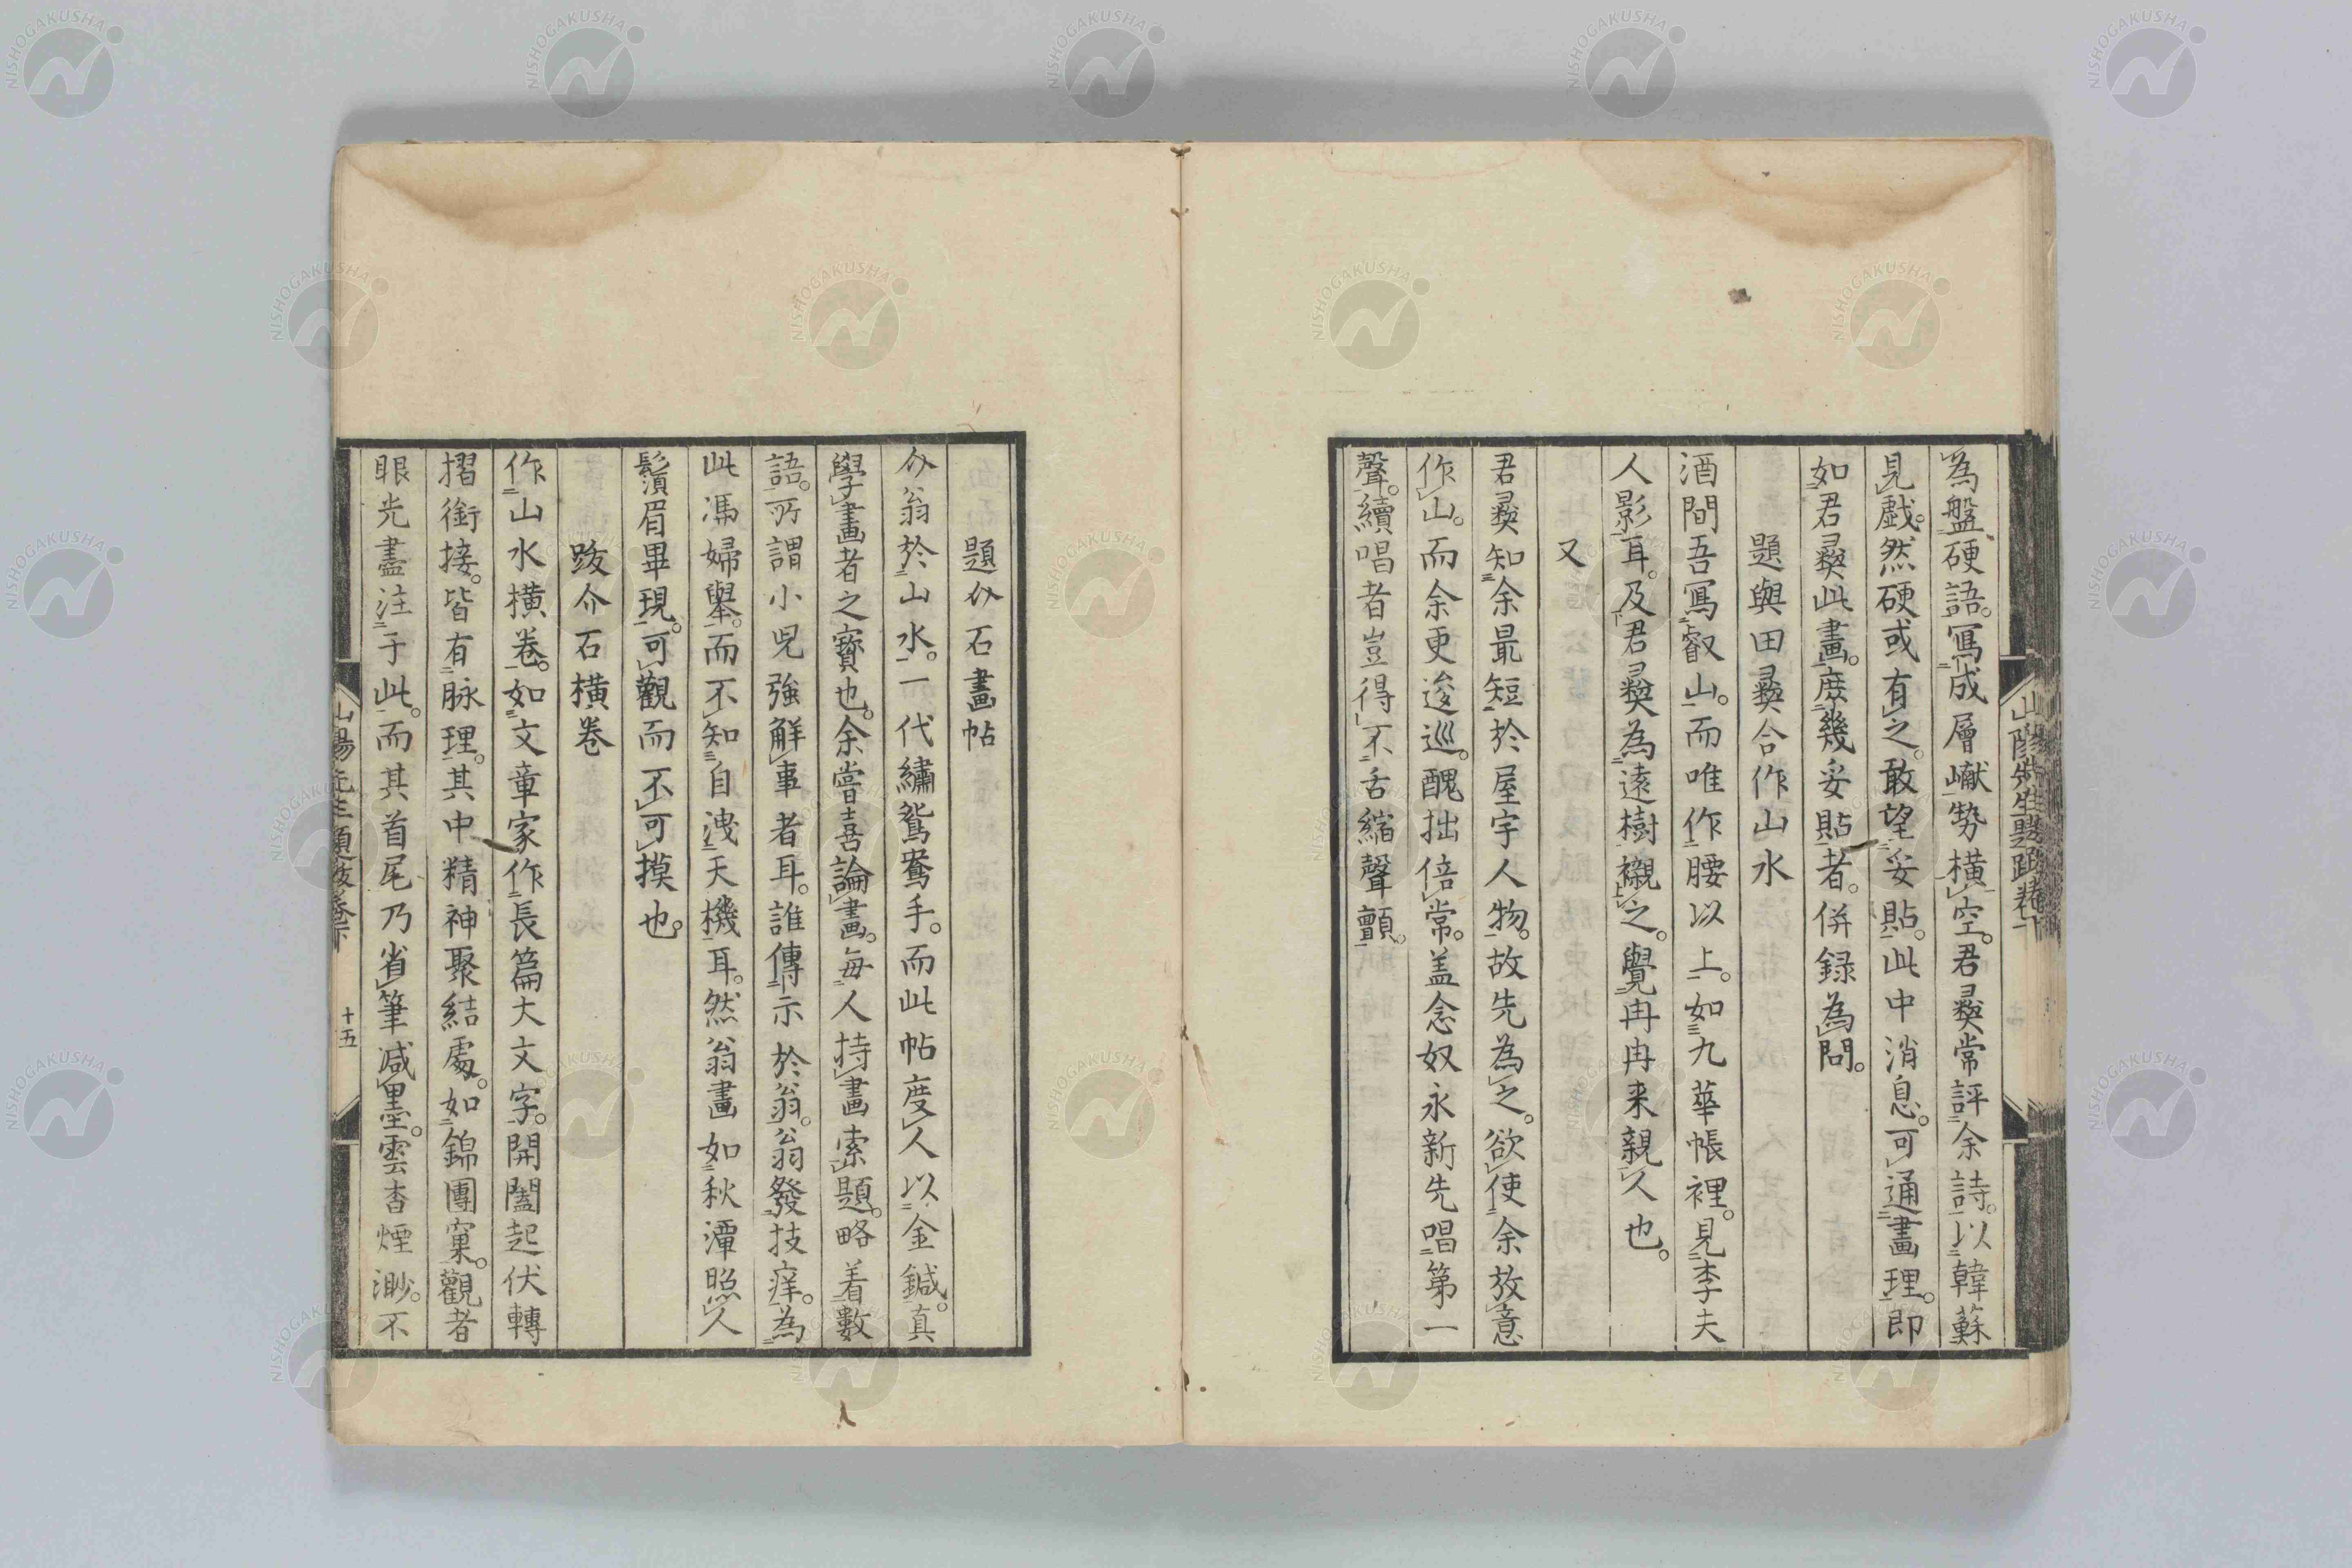 為盤硬語。寫成層巘勢横空。君彜常評余詩。以韓蘇
見戲。然硬或有之。敢望妥貼。此中消息。可通畫理。即
如君彜此畫。庶幾妥貼者。併録為問。
題與田彜合作山水
酒間吾寫叡山。而唯作腰以上。如九華帳裡。見李夫
人影耳。及君彜為遠樹襯之。覺冉冉来親人也。
又
君彜知余最短於屋宇人物。故先為之。欲使余放意
作山。而余更逡巡。醜拙倍常。盖念奴永新先唱第一
聲。續唱者豈得不舌縮聲顫。
題介石畫帖
介翁於山水。一代繡鴛鴦手。而此帖度人以金鍼。真
學畫者之寶也。余嘗喜論畫。毎人持畫索題。略着數
語。所謂小兒強解事者耳。誰傳示於翁。翁發技痒。為
此馮婦舉。而不知自洩天機耳。然翁畫如秋潭照人
鬚眉畢現。可觀而不可摸也。
跋介石横卷
作山水横卷。如文章家作長篇大文字。開闔起伏轉
摺銜接。皆有脉理。其中精神聚結處。如錦團窠。觀者
眼光盡注于此。而其首尾乃省筆減墨。雲杳煙渺。不
山陽先生題跋卷下
十五
NISHOGAKUSHA